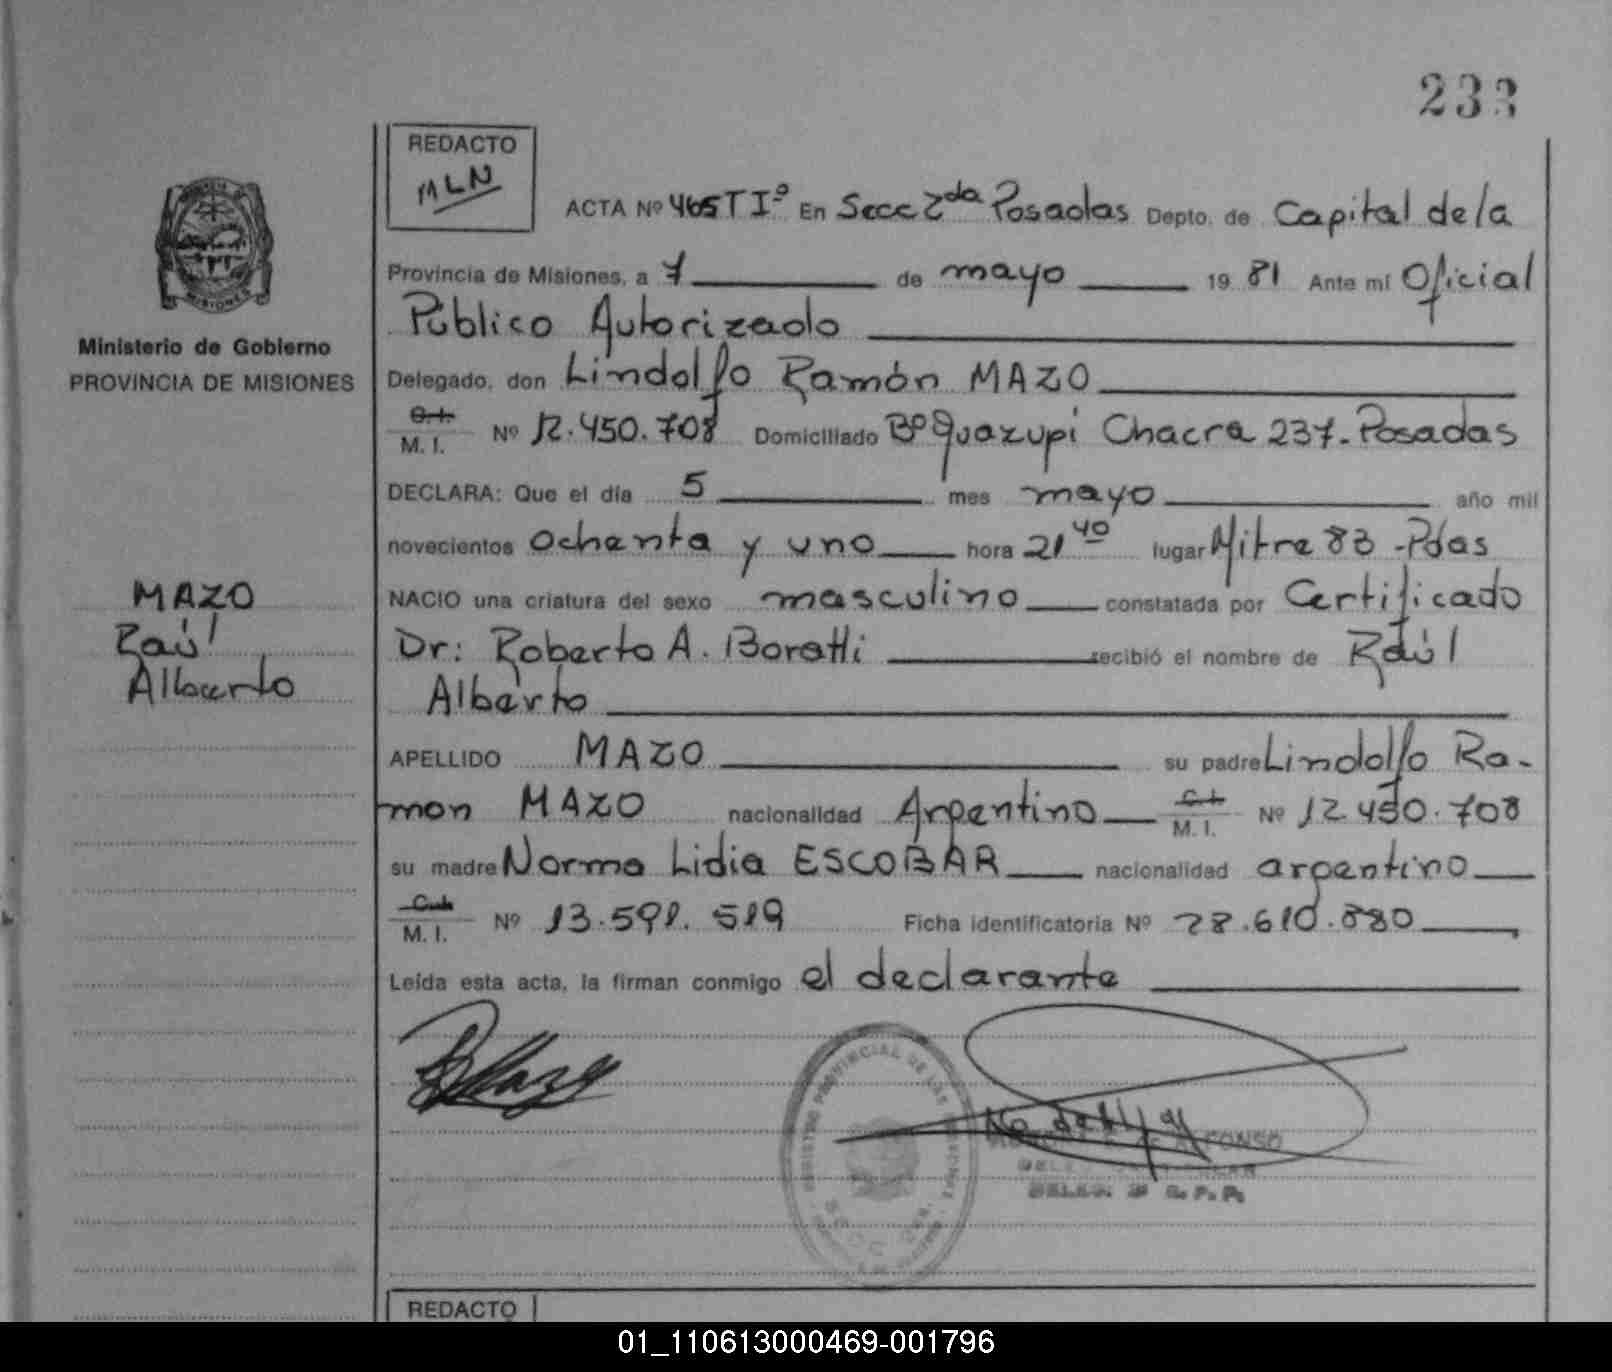 233
REDACTO
MLN
ACTA Nº 465 T Iº En Secc 2da Posadas Depto. de Capital de la
Provincia de Misiones, a 7 de mayo 19 81 Ante mi Oficial
Público Autorizado
Delegado, don Lindolfo Ramón MAZO
C.I. M. I. Nº 12.450.708 Domiciliado Bº Guazupi Chacra 237.- Posadas
DECLARA: Que el día 5 mes mayo año mil
novecientos ochenta y uno hora 21 40 lugar Mitre 83 -Pdas
NACIO una criatura del sexo masculino constatada por Certificado
Dr: Roberto A. Boratti recibió el nombre de Raúl
Alberto
APELLIDO MAZO su padre Lindolfo Ra-
mon MAZO nacionalidad Argentino C.I. M. I. Nº 12.450.708
su madre Norma Lidia ESCOBAR nacionalidad argentino
M. I. Nº 13.591.519 Ficha identificatoria Nº 28.610.880
Leída esta acta, la firman conmigo el declarante
MISIONES
Ministerio de Gobierno
PROVINCIA DE MISIONES
MAZO
Raúl
Alberto
REGISTRO PROVINCIAL DE LAS
REDACTO
01_110613000469-001796